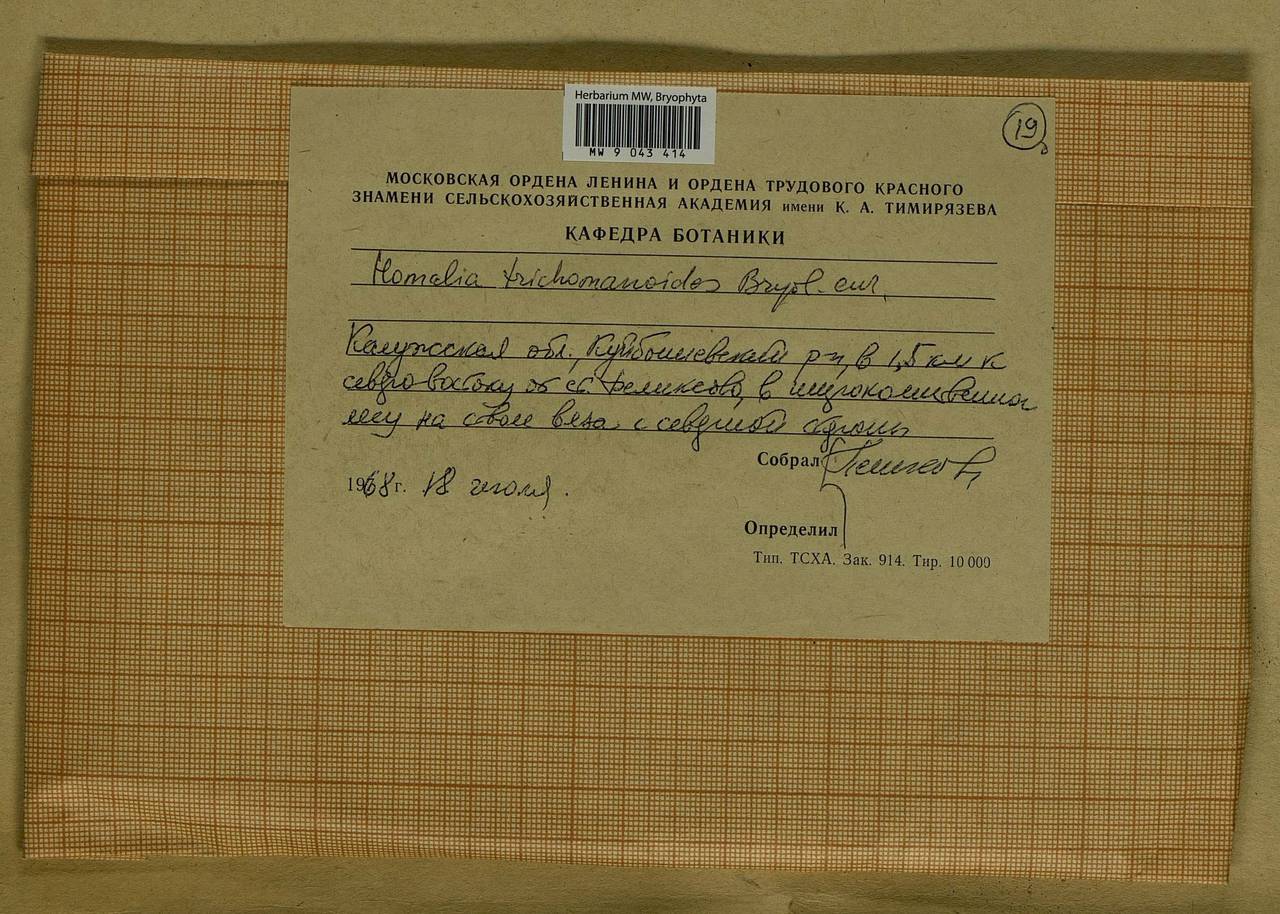 Herbarium MW, Bryophyta
MW 9 043 414
19
МОСКОВСКАЯ ОРДЕНА ЛЕНИНА И ОРДЕНА ТРУДОВОГО КРАСНОГО
ЗНАМЕНИ СЕЛЬСКОХОЗЯЙСТВЕННАЯ АКАДЕМИЯ имени К. А. ТИМИРЯЗЕВА
КАФЕДРА БОТАНИКИ
Homalia trichomanoides Bryol. eur.
Калужская обл., Куйбышевский р-н, в 1,5 км к
северо востоку от ст. в широколиственном
лесу на стволе вяза с северной стороны
Собрал
1968 г. 18 июля.
Определил
Тип. ТСХА. Зак. 914. Тир. 10 000